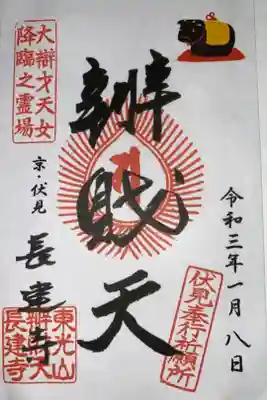 令和三年一月八日
伏見奉行祈願所
辨戝天
大辯才天女
降臨之霊場
京・伏見
長建寺
東光山
長建寺